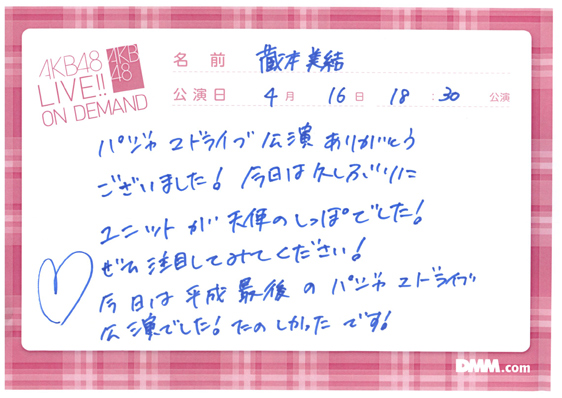 AKB48
LIVE!!
ON DEMAND
AKB
48
名前 蔵本美結
公演日 4月 16日 18:30 公演
パジャマドライブ公演ありがとう
ございました! 今日は久しぶりに
ユニットが天使のしっぽでした!
ぜひ注目してみてください!
今日は平成最後のパジャマドライブ
公演でした! たのしかったです!
DMM.com